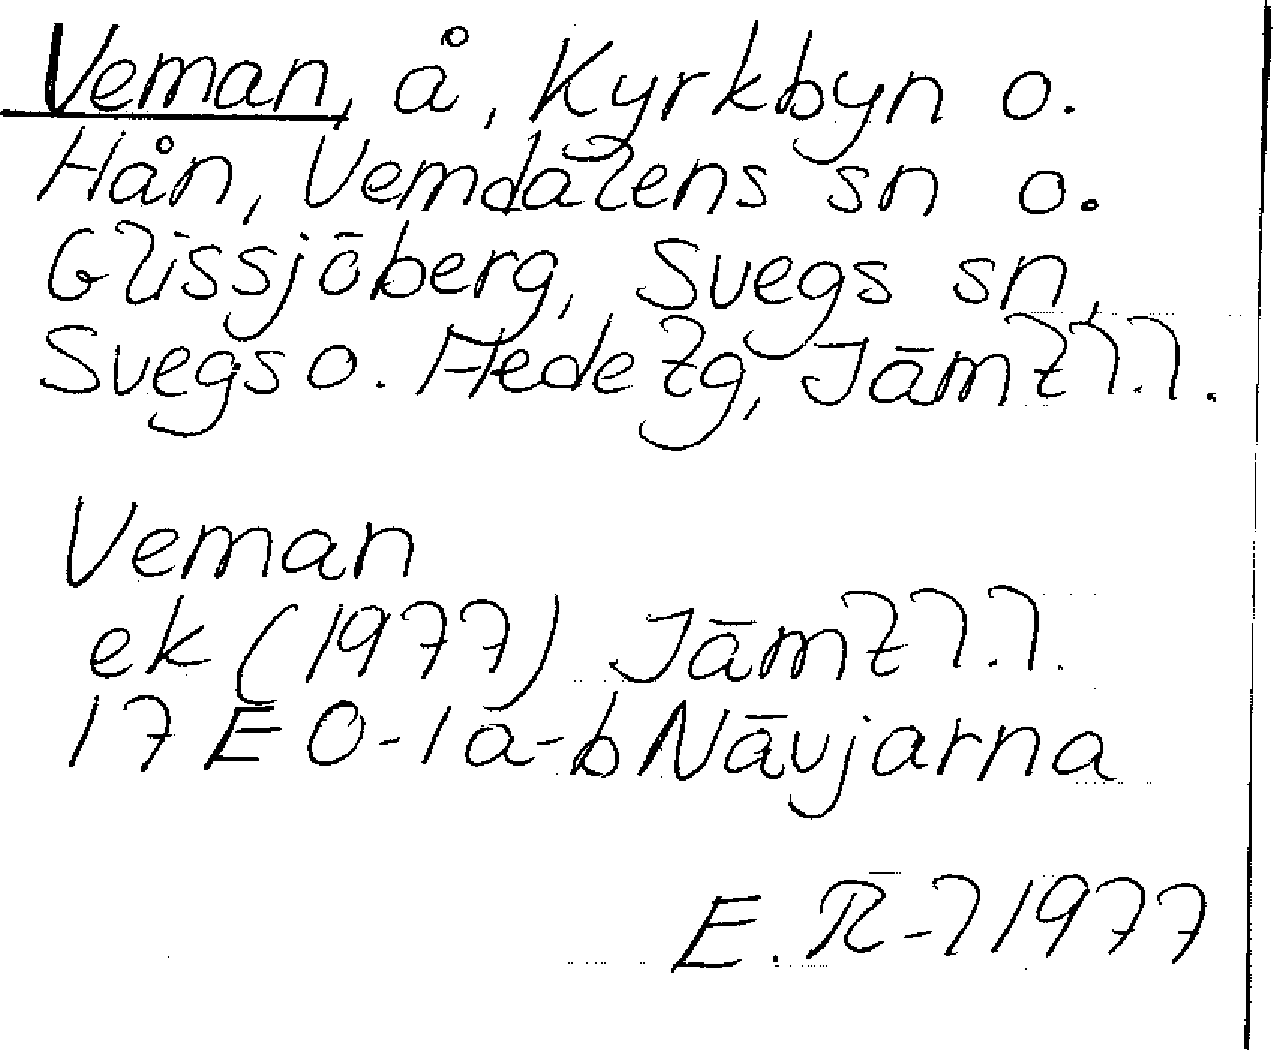 Veman, å, Kyrkbyn o.
Hån, Vemdalens sn o.
Glissjöberg, Svegs sn,
Svegs o. Hede tg, Jämtl.l.
Veman
ek (1977) Jämtl.l.
17 E 0-1 a-b Nävjarna
1977